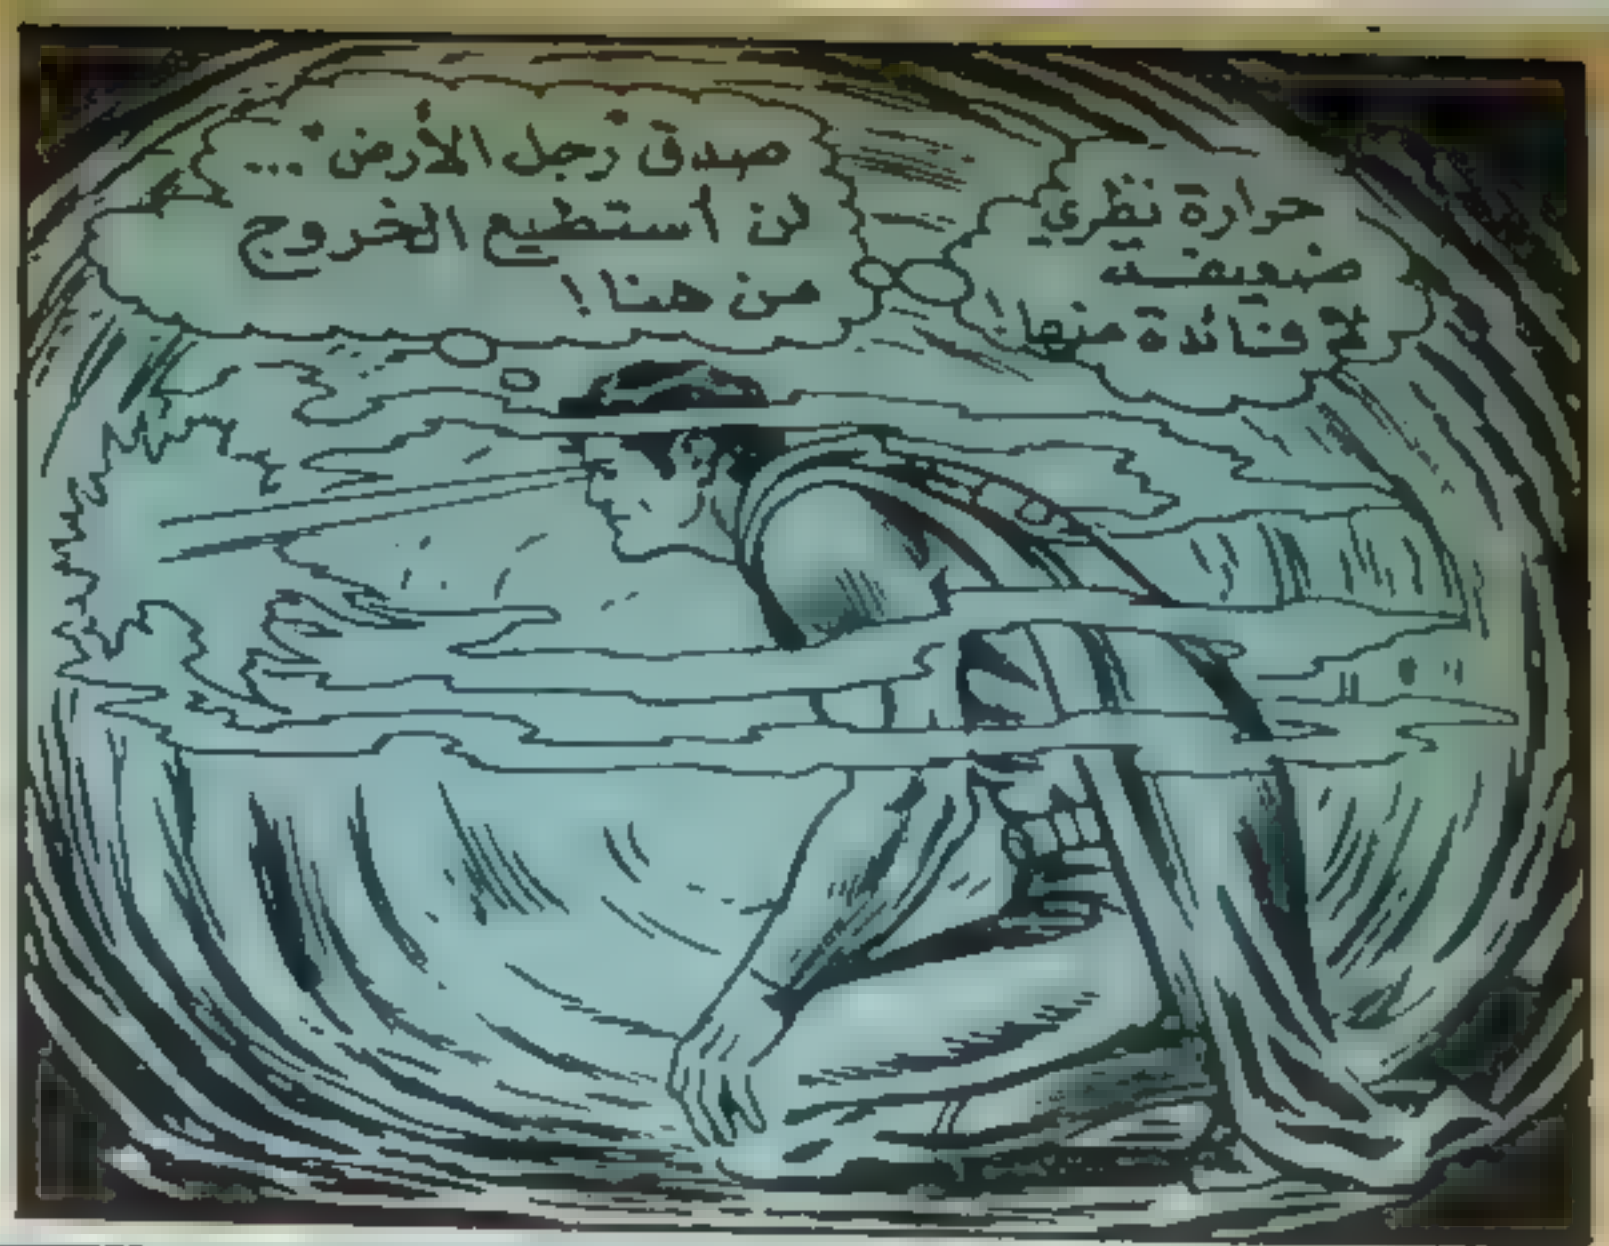 حرارة نظري
ضعيفة
لا فائدة منها!
صدق رجل الأرض...
لن أستطيع الخروج
من هنا!